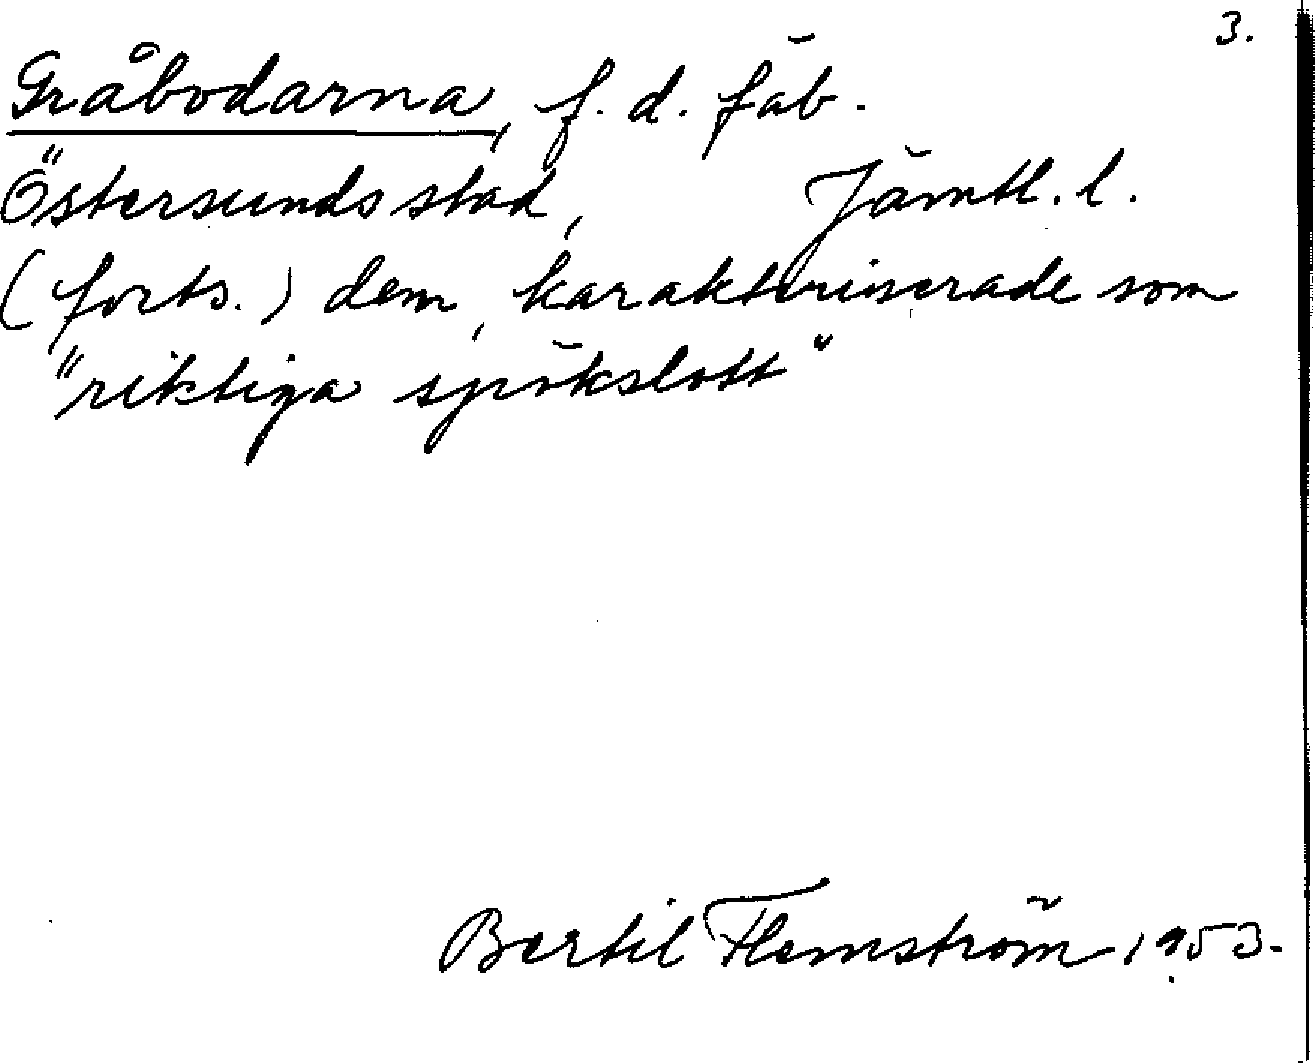 3.
Gråbodarna, f. d. fäb.
Östersunds stad, Jämtl. l.
(forts.) dem, karakteriserade som
"riktiga spökslott"
Bertil Flemström 1953.